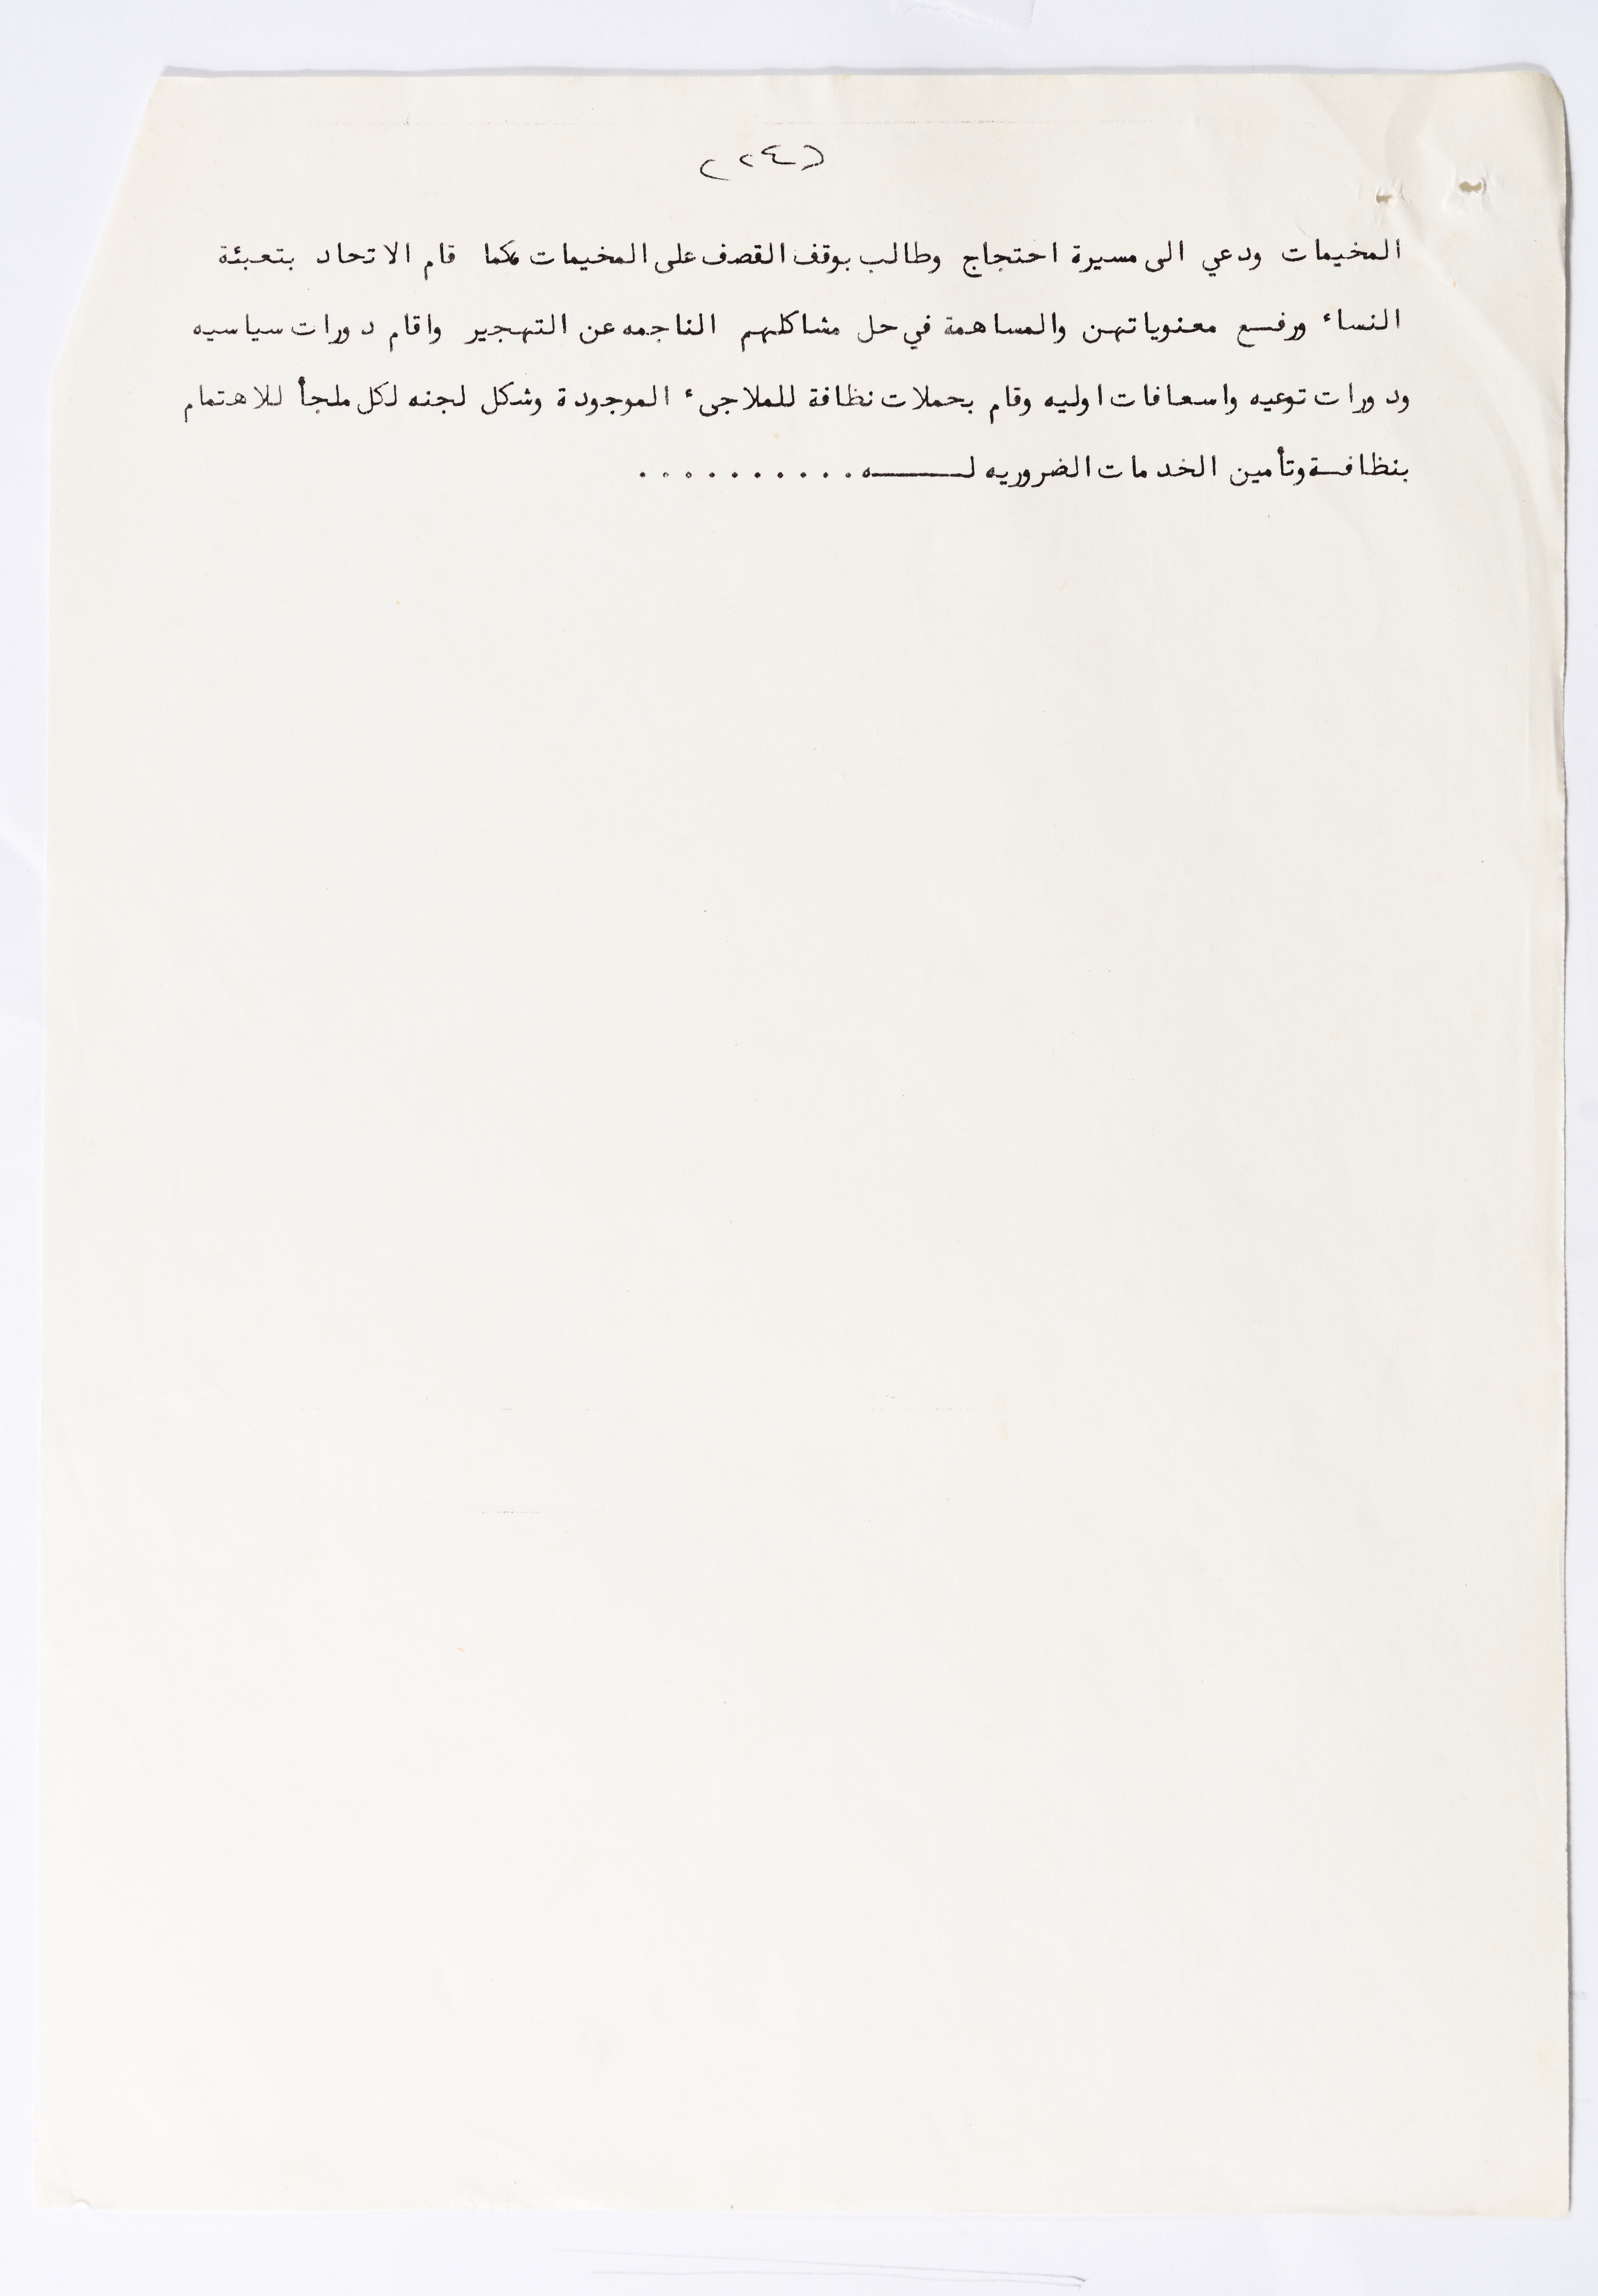 (٢٤)
المخيمات ودعي الى مسيرة احتجاج وطالب بوقف القصف على المخيمات كما قام الاتحاد بتعبئة
النساء ورفـع معنوياتهن والمساهمة في حل مشاكلهم الناجمه عن التهجير واقام دورات سياسيه
ودورات توعيه واسعافات اوليه وقام بحملات نظافة للملاجىء الموجودة وشكل لجنه لكل ملجأ للاهتمام
بنظافـة وتأمين الخدمات الضروريه لـــــه . . . . . . . . . .